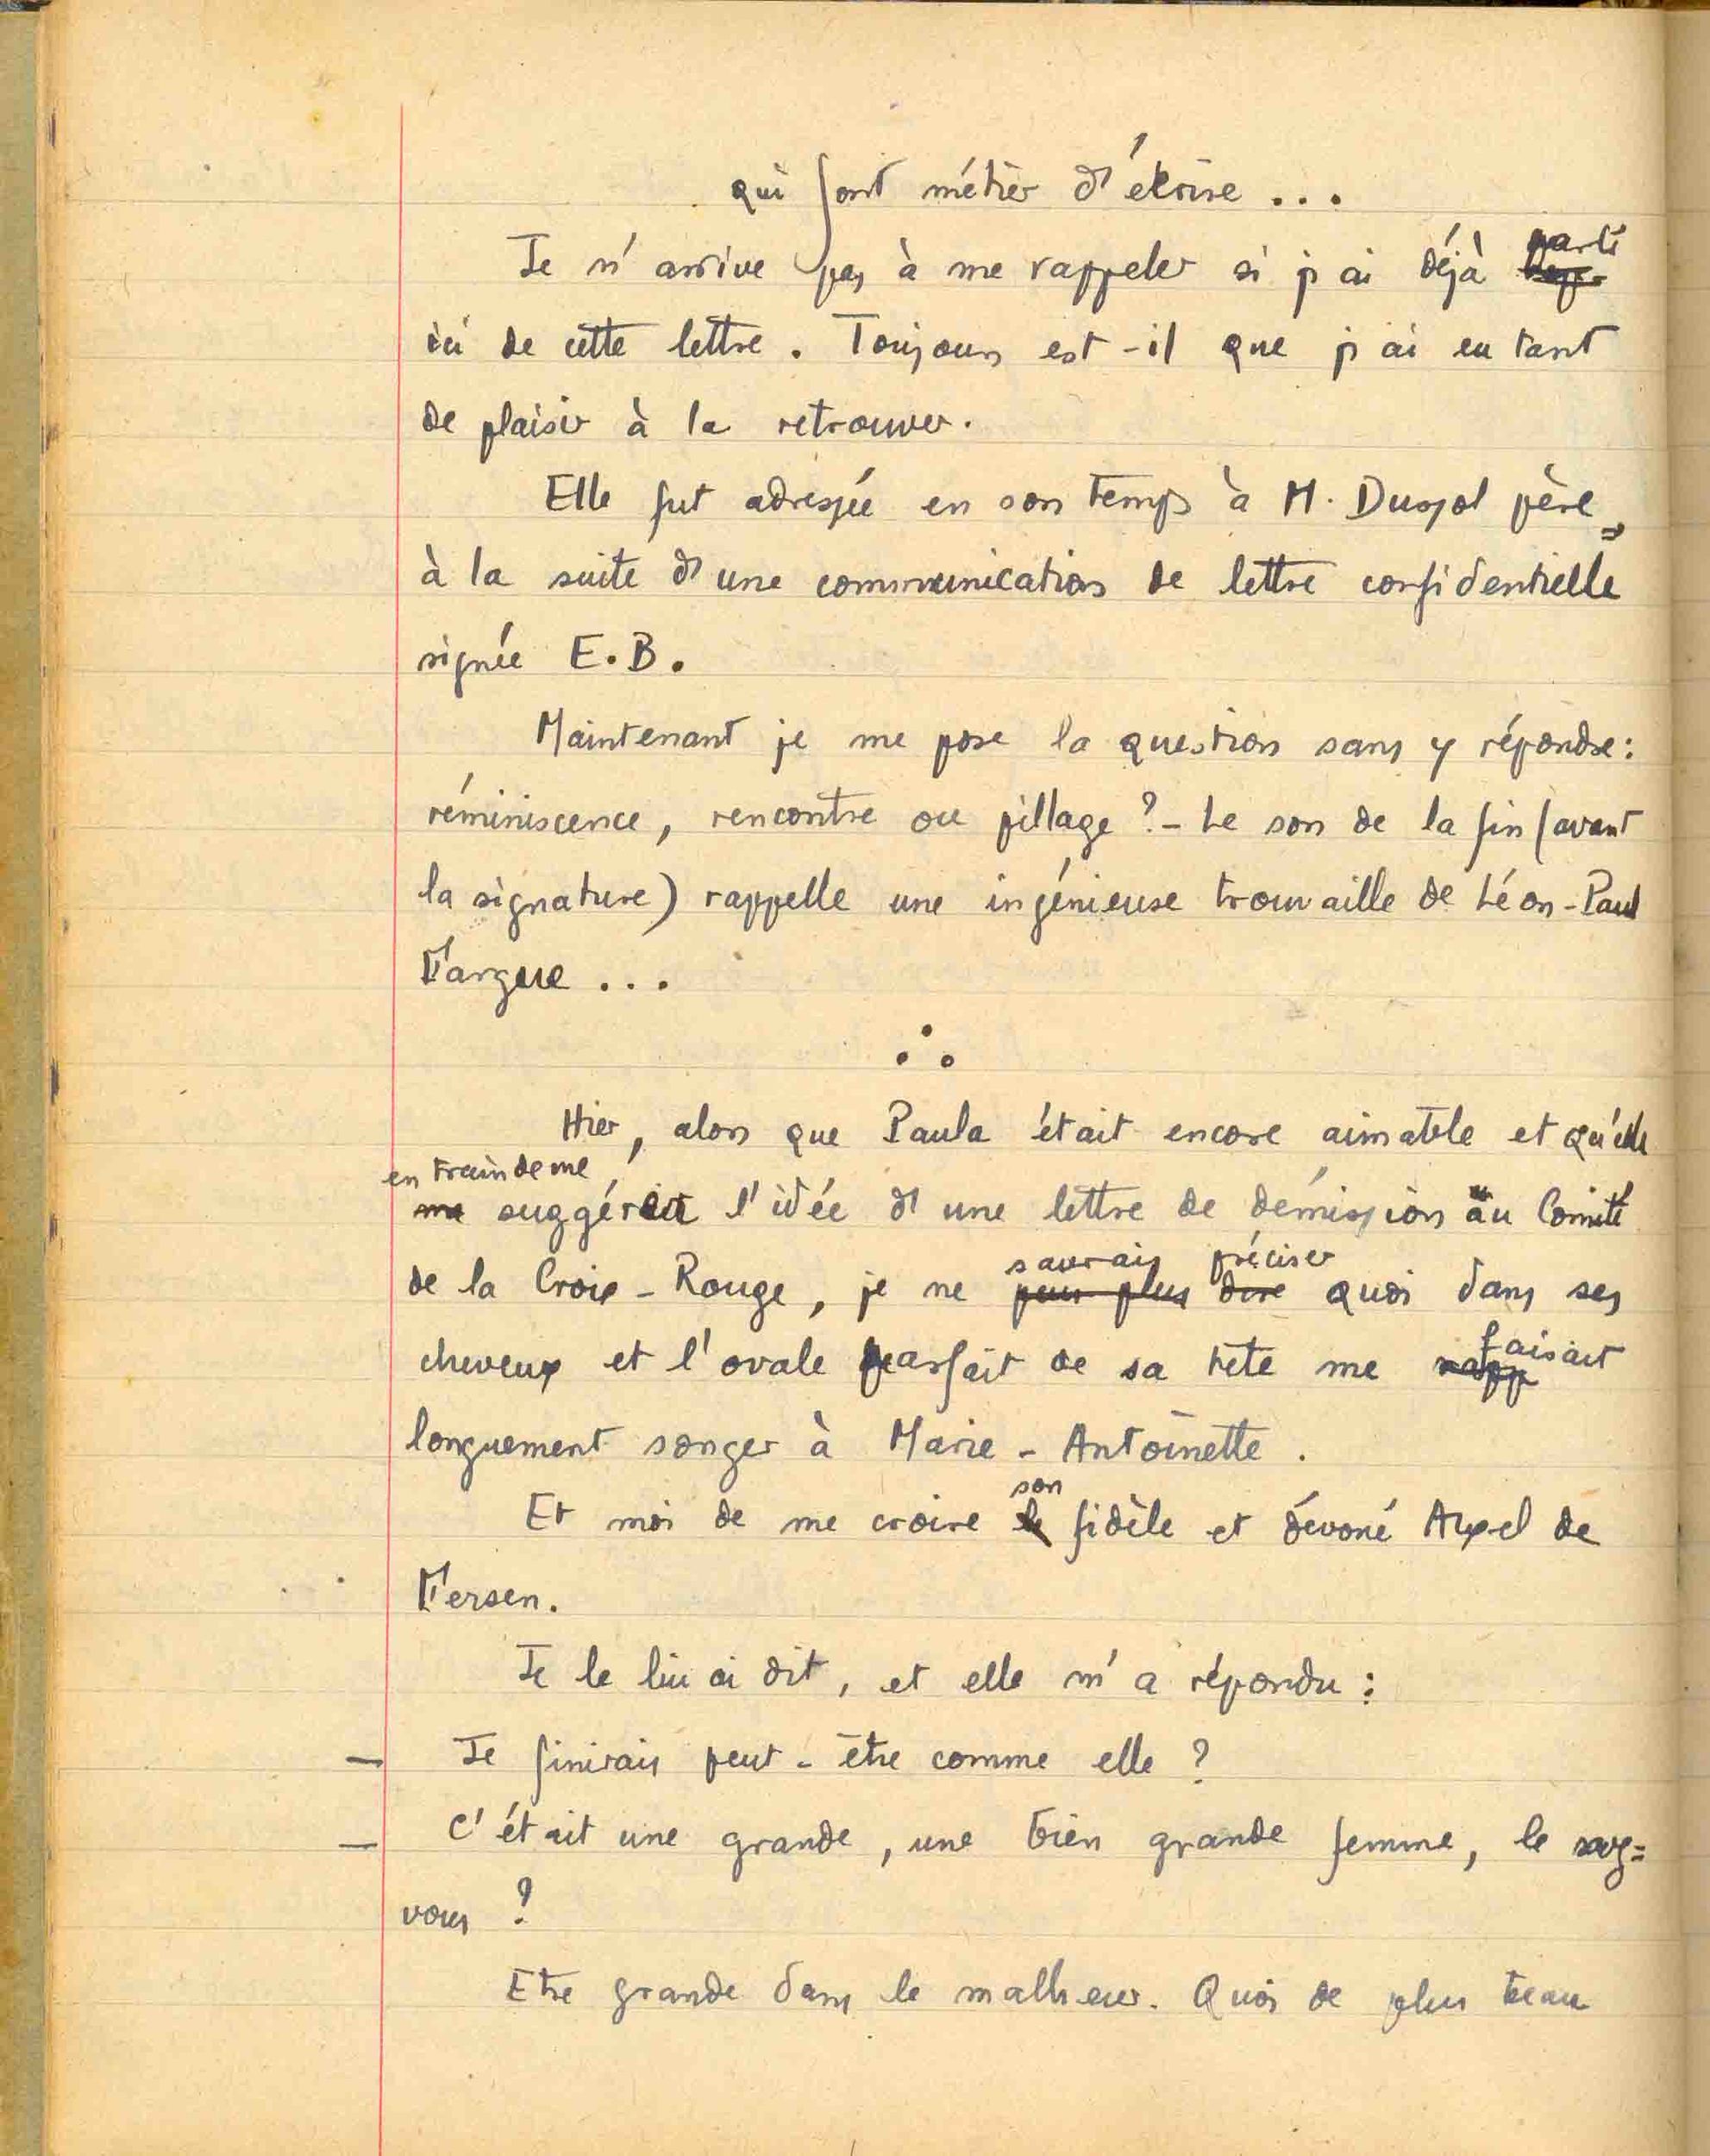 qui font métier d'écrire ...
Je n'arrive pas à me rappeler si j'ai déjà parlé
ici de cette lettre. Toujours est-il que j'ai eu tant
de plaisir à la retrouver.
Elle fut adressée en son temps à M. Dusol père,
à la suite d'une communication de lettre confidentielle
signée E.B.
Maintenant je me pose la question sans y répondre:
réminiscence, rencontre ou pillage ? - Le son de la fin (avant
la signature) rappelle une ingénieuse trouvaille de Léon-Paul
Fargue ...
∴
Hier, alors que Paula était encore aimable et qu'elle
en train de me
me suggérait l'idée d'une lettre de démission au Comité
saurais préciser
de la Croix-Rouge, je ne peux plus dire quoi dans ses
faisait
cheveux et l'ovale parfait de sa tête me rapp
longuement songer à Marie-Antoinette.
son
Et moi de me croire le fidèle et dévoué Axel de
Fersen.
Je le lui ai dit, et elle m'a répondu :
— Je finirais peut-être comme elle ?
— C'était une grande, une bien grande femme, le
vous ?
Etre grande dans le malheur. Quoi de plus beau